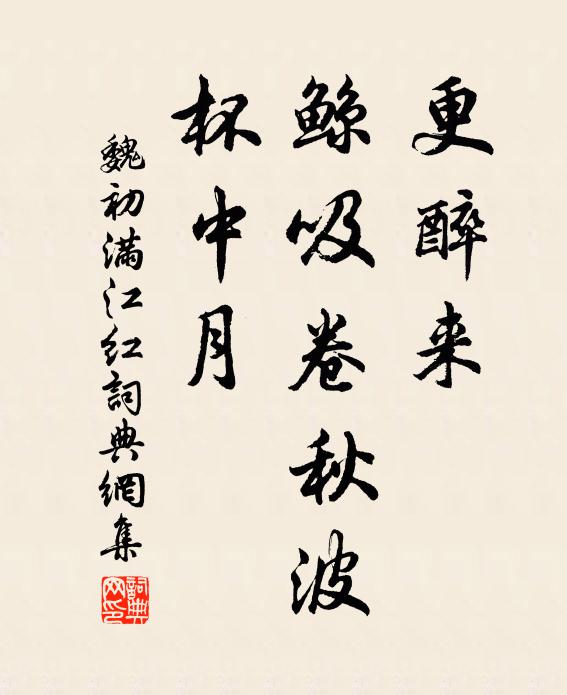 更醉来
鲸吸卷秋波
杯中月
魏初满江红詞典網集
詞典網印